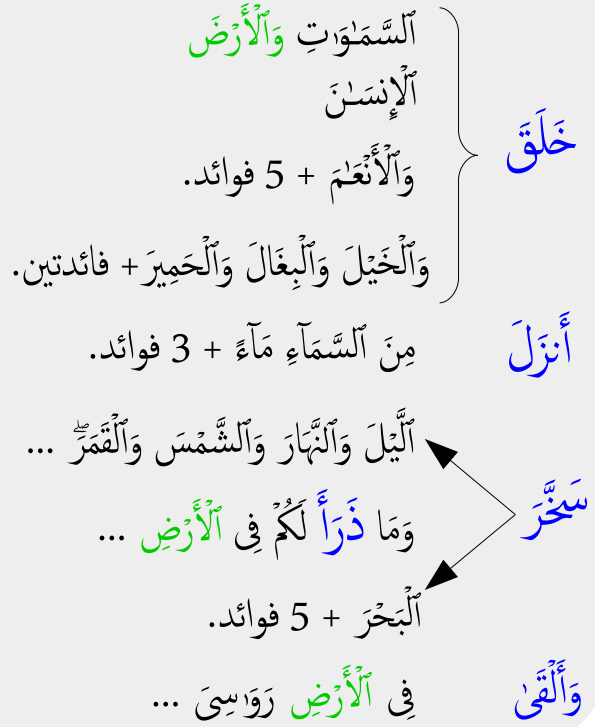 ٱلسَّمَـٰوَٰتِ وَٱلْأَرْضَ
ٱلْإِنسَـٰنَ
خَلَقَ
وَٱلْأَنْعَـٰمَ + 5 فوائد.
وَٱلْخَيْلَ وَٱلْبِغَالَ وَٱلْحَمِيرَ + فائدتين.
أَنزَلَ مِنَ ٱلسَّمَآءِ مَآءً + 3 فوائد.
ٱلَّيْلَ وَٱلنَّهَارَ وَٱلشَّمْسَ وَٱلْقَمَرَۖ ...
سَخَّرَ
وَمَا ذَرَأَ لَكُمْ فِى ٱلْأَرْضِ ...
ٱلْبَحْرَ + 5 فوائد.
وَأَلْقَىٰ فِى ٱلْأَرْضِ رَوَٰسِىَ ...